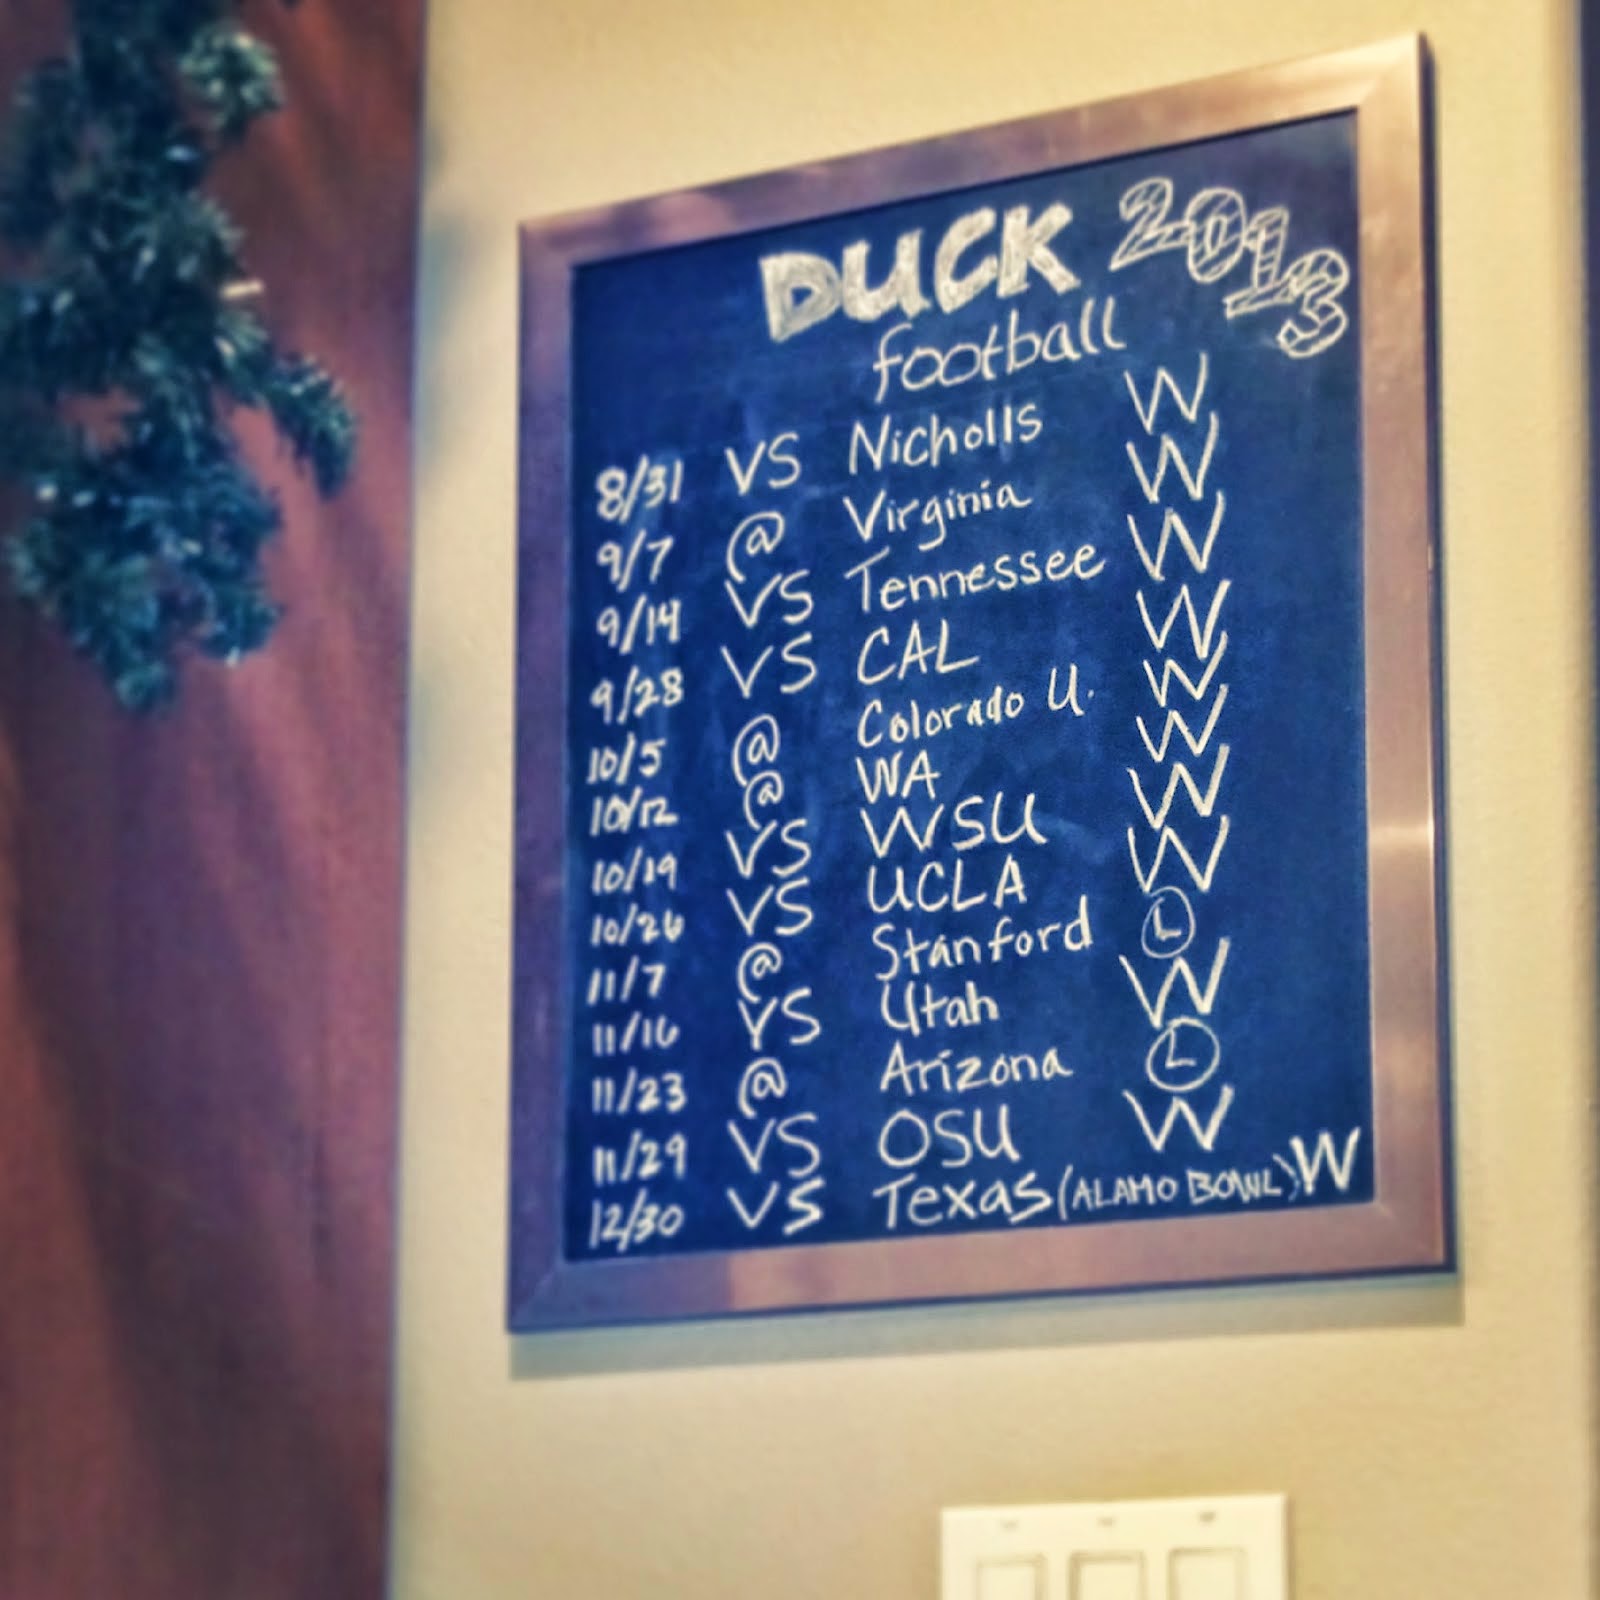 DUCK 2013
football
8/31 VS Nicholls W
9/7 @ Virginia W
9/14 VS Tennessee W
9/28 VS CAL W
10/5 @ Colorado U. W
10/12 @ WA W
10/19 VS WSU W
10/26 VS UCLA W
11/7 @ Stanford L
11/16 VS Utah W
11/23 @ Arizona L
11/29 VS OSU W
12/30 VS Texas (ALAMO BOWL) W